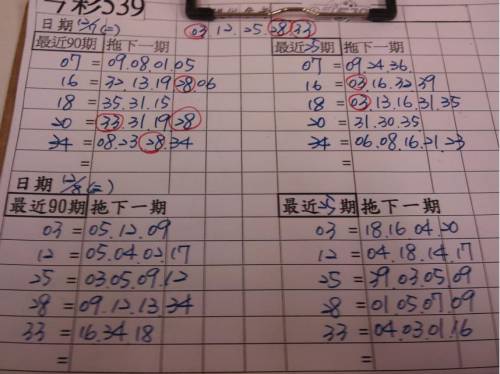 今彩539
日期 12/7(一) 03.12.25.28.33
最近90期 拖下一期
07 = 09.08.01.05
16 = 32.13.19.28.06
18 = 35.31.15
20 = 33.31.19.28
34 = 08.23.28.34
=
最近25期 拖下一期
07 = 09.24.36
16 = 03.16.32.39
18 = 03.13.16.31.35
20 = 31.30.35
34 = 06.08.16.21.23
=
日期 12/8(二)
最近90期 拖下一期
03 = 05.12.09
12 = 05.04.02.17
25 = 03.05.09.12
28 = 09.12.13.34
33 = 16.34.18
=
最近25期 拖下一期
03 = 18.16.04.20
12 = 04.18.14.17
25 = 39.03.05.09
28 = 01.05.07.09
33 = 04.03.01.16
=